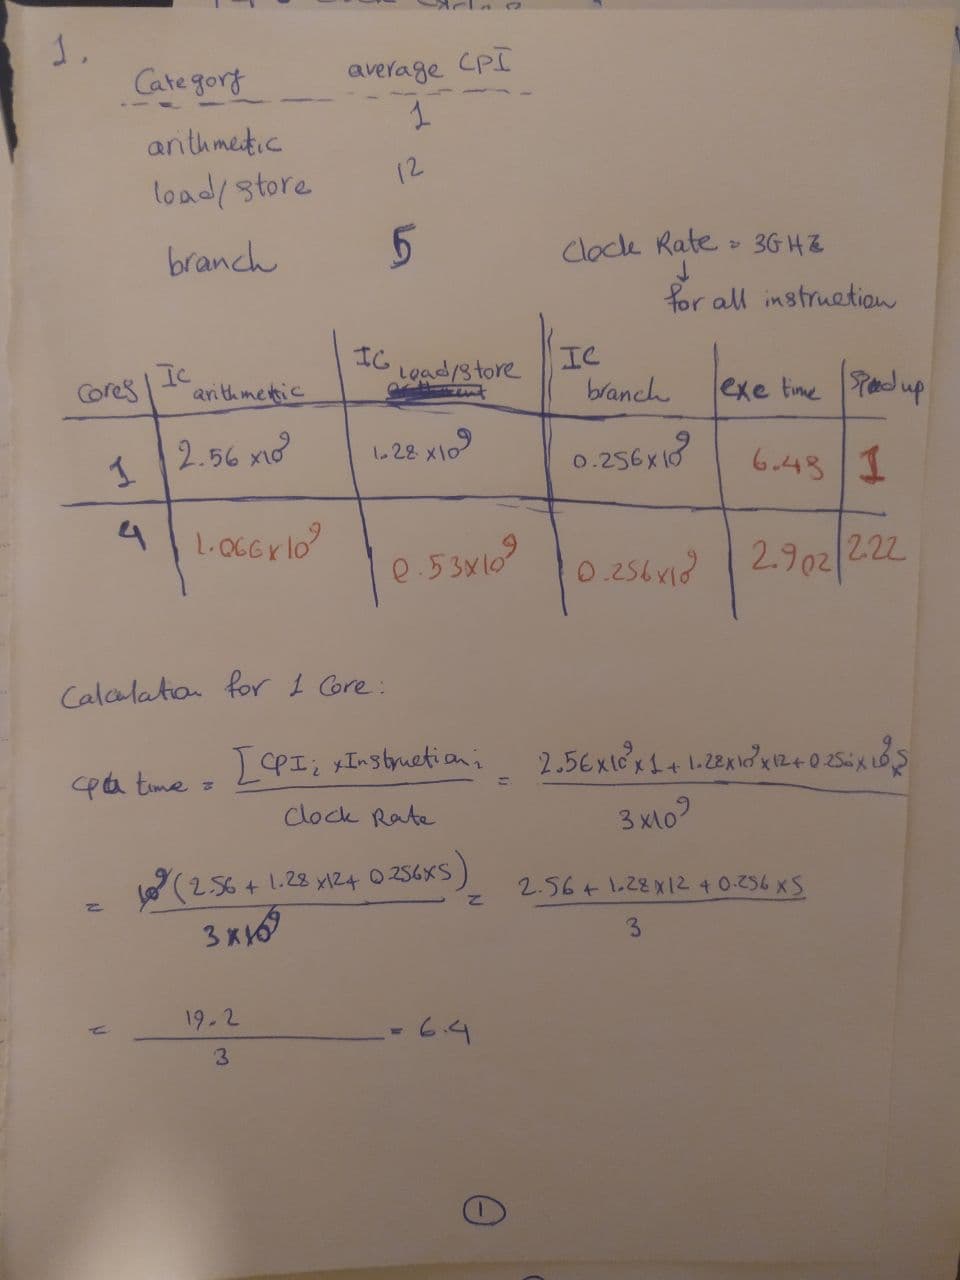 1.
Category average CPI
arithmetic 1
load/store 12
branch 5
Clock Rate = 3GHZ
↓
for all instruction
Cores IC arithmetic IC load/store IC branch exe time Speed up
1 2.56 x10^9 1.28 x10^9 0.256x10^9 6.43 1
4 1.066x10^9 0.53x10^9 0.256x10^9 2.902 2.22
Calculation for 1 Core:
time = Σ CPI_i x Instruction_i / Clock Rate = 2.56x10^9x1+1.28x10^9x12+0.256x10^9x5 / 3x10^9
= 10^9(2.56+1.28x12+0.256x5) / 3x10^9 = 2.56+1.28x12+0.256x5 / 3
= 19.2 / 3 = 6.4
1